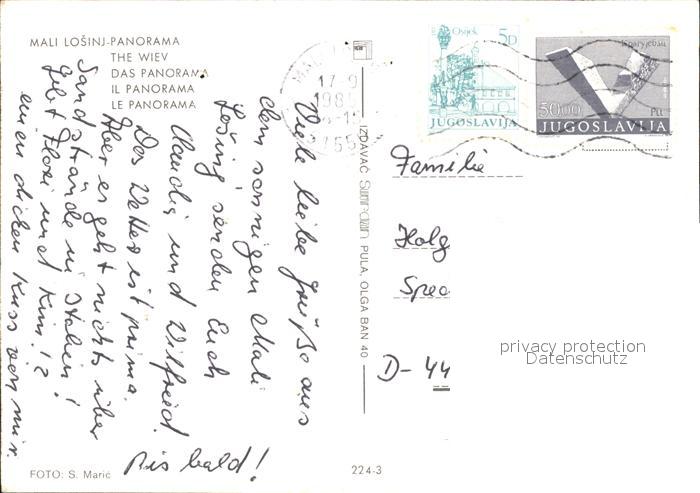 MALI LOŠINJ-PANORAMA
THE WIEV
DAS PANORAMA
IL PANORAMA
LE PANORAMA
Viele liebe Grüße aus
dem sonnigen Mali
Lošinj senden Euch
Claudia und Wilfried.
Das Wetter ist prima.
Aber es geht nichts über
Sandstrände in Italien!
Gebt Flori und Kim
einen dicken Kuss von mir.
Bis bald!
FOTO: S. Marić
224-3
IZDAVAČ PULA, OLGA BAN 40
MALI
17-9
1985
Osijek
5D
JUGOSLAVIJA
50.00
JUGOSLAVIJA
Familie
Holg
Spec
D-44
privacy protection
Datenschutz